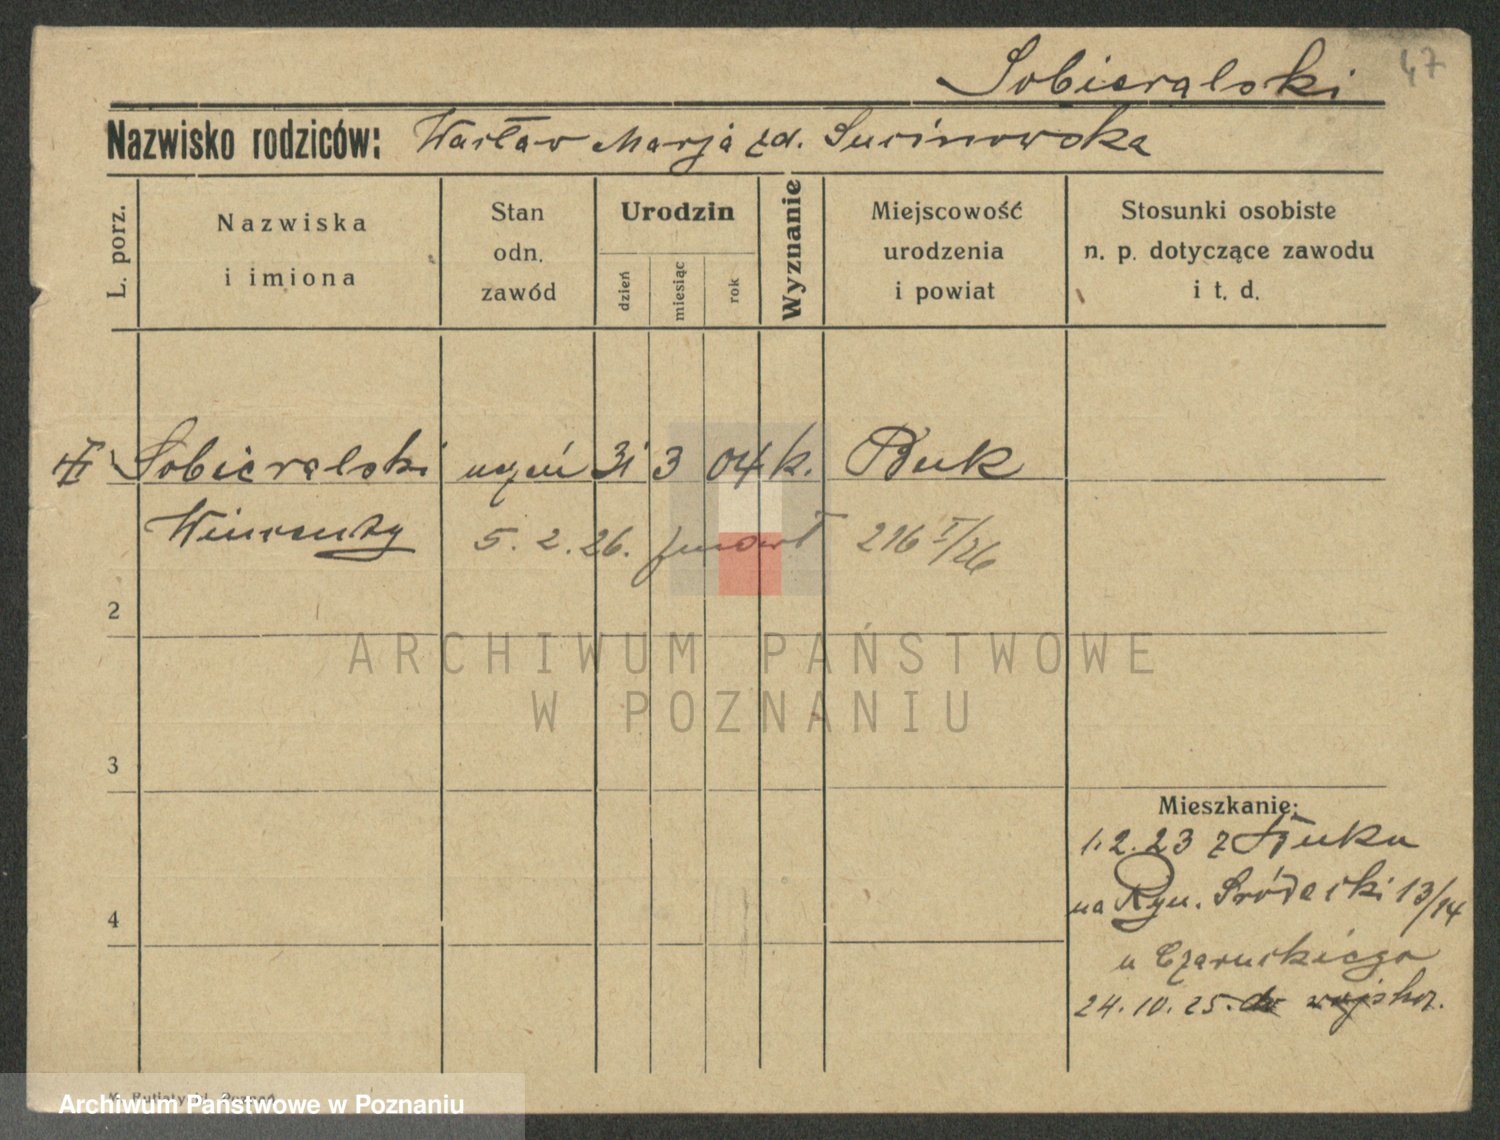 47
Sobieralski
Nazwisko rodziców: Wacław Marja zd. Sucinowska
L. porz.
Nazwiska
i imiona
Stan
odn.
zawód
Urodzin
dzień
miesiąc
rok
Wyznanie
Miejscowość
urodzenia
i powiat
Stosunki osobiste
n. p. dotyczące zawodu
i t. d.
Sobieralski uczeń 31 3 04 k. Buk
Wincenty 5. 2. 26. zmarł 216 I/26
2
ARCHIWUM PAŃSTWOWE
W POZNANIU
3
Mieszkanie:
1. 2. 23 z Buku
na Ryn. Śródecki 13/14
4
u Czarneckiego
24. 10. 25. do wojska.
Poznań
Archiwum Państwowe w Poznaniu